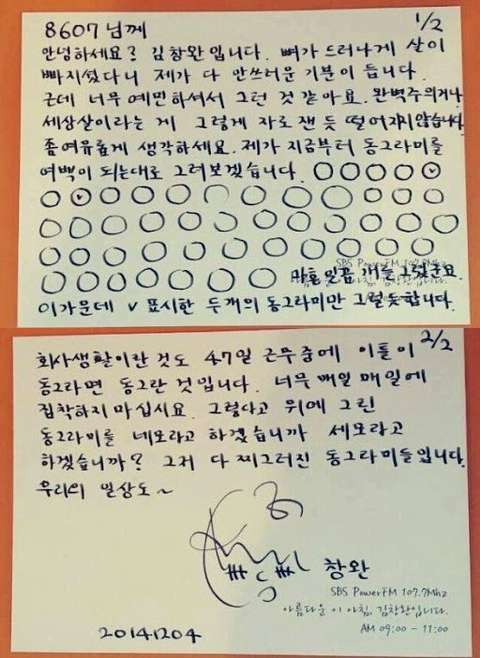 8607님께 1/2
안녕하세요? 김창완입니다. 뼈가 드러나게 살이
빠지셨다니 제가 다 안쓰러운 기분이 듭니다.
근데 너무 예민하셔서 그런 것 같아요. 완벽주의거나
세상살이라는 게 그렇게 자로 잰 듯 떨어지지 않습니다.
좀 여유롭게 생각하세요. 제가 지금부터 동그라미를
여백이 되는대로 그려보겠습니다.
마흔 일곱 개를 그렸군요.
SBS PowerFM 107.7Mhz
이 아침, 김창완입니다.
이 가운데 v 표시한 두개의 동그라미만 그럴듯합니다.
회사생활이란 것도 47일 근무 중에 이틀이 2/2
동그라면 동그란 것입니다. 너무 매일 매일에
집착하지 마십시요. 그렇다고 위에 그린
동그라미를 네모라고 하겠습니까 세모라고
하겠습니까? 그저 다 찌그러진 동그라미들입니다.
우리의 일상도~
창완
SBS PowerFM 107.7Mhz
아름다운 이 아침, 김창완입니다.
20141204
AM 09:00 - 11:00